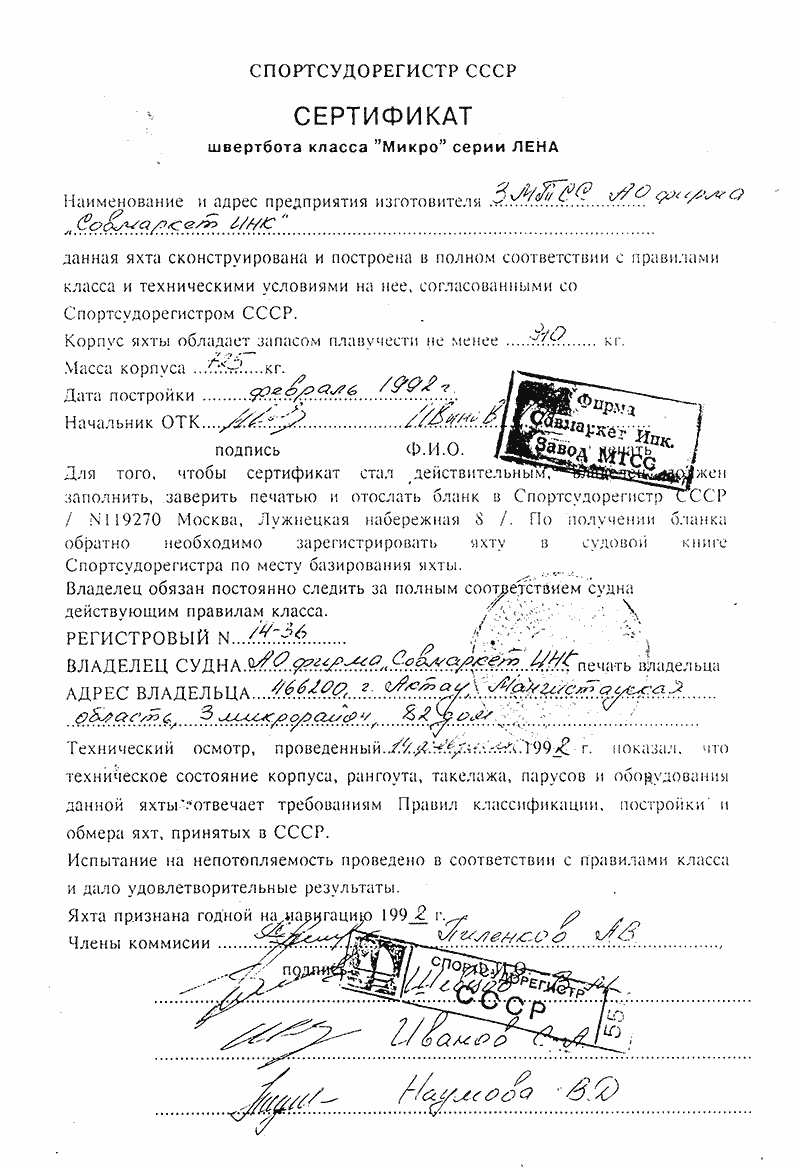 СПОРТСУДОРЕГИСТР СССР
СЕРТИФИКАТ
швертбота класса "Микро" серии ЛЕНА
Наименование и адрес предприятия изготовителя ЗМТСС АО фирма
„Совмаркет ИНК"
данная яхта сконструирована и построена в полном соответствии с правилами
класса и техническими условиями на нее, согласованными со
Спортсудорегистром СССР.
Корпус яхты обладает запасом плавучести не менее ....310...... кг.
Масса корпуса ...725....кг.
Дата постройки ......февраль 1992 г.
Начальник ОТК.... Иванов
Фирма
Совмаркет Инк.
Завод МТСС
подпись Ф.И.О. печать
Для того, чтобы сертификат стал действительным, владелец должен
заполнить, заверить печатью и отослать бланк в Спортсудорегистр СССР
/ N119270 Москва, Лужнецкая набережная 8 /. По получении бланка
обратно необходимо зарегистрировать яхту в судовой книге
Спортсудорегистра по месту базирования яхты.
Владелец обязан постоянно следить за полным соответствием судна
действующим правилам класса.
РЕГИСТРОВЫЙ N...14-36.......
ВЛАДЕЛЕЦ СУДНА.АО фирма „Совмаркет ИНК печать владельца
АДРЕС ВЛАДЕЛЬЦА...466200, г. Актау, Мангистауская
область, 3 микрорайон, 82 дом
Технический осмотр, проведенный.14 1992 г. показал, что
техническое состояние корпуса, рангоута, такелажа, парусов и оборудования
данной яхты отвечает требованиям Правил классификации, постройки и
обмера яхт, принятых в СССР.
Испытание на непотопляемость проведено в соответствии с правилами класса
и дало удовлетворительные результаты.
Яхта признана годной на навигацию 1992 г.
Члены коммисии ..... Пиленков АВ
подпись Ф.И.О.
СПОРТСУДОРЕГИСТР
СССР
55
Иванов С.А
Наумова В.Д